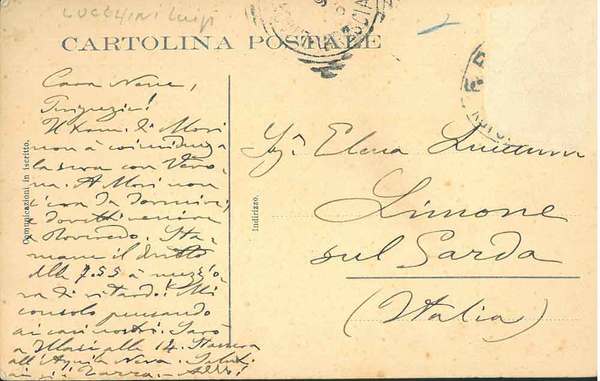 LUCCHINI Luigi
CARTOLINA POSTALE
Comunicazioni in iscritto.
Cara Neve,
Disgrazia!
Il tram di Mori
non à coincidenza
la sera con Vero
na. A Mori non
c'era da dormire,
e dovetti venire
a Rovereto. Sta
mane il diretto
delle 7.55 à mezz'o
ra di ritardo! Mi
consolo pensando
ai casi nostri. Sarò
a alle 14. Stasera
all'Aquila Nera. Saluti
Indirizzo.
Sigª Elena Lucchini
Limone
sul Garda
(Italia)